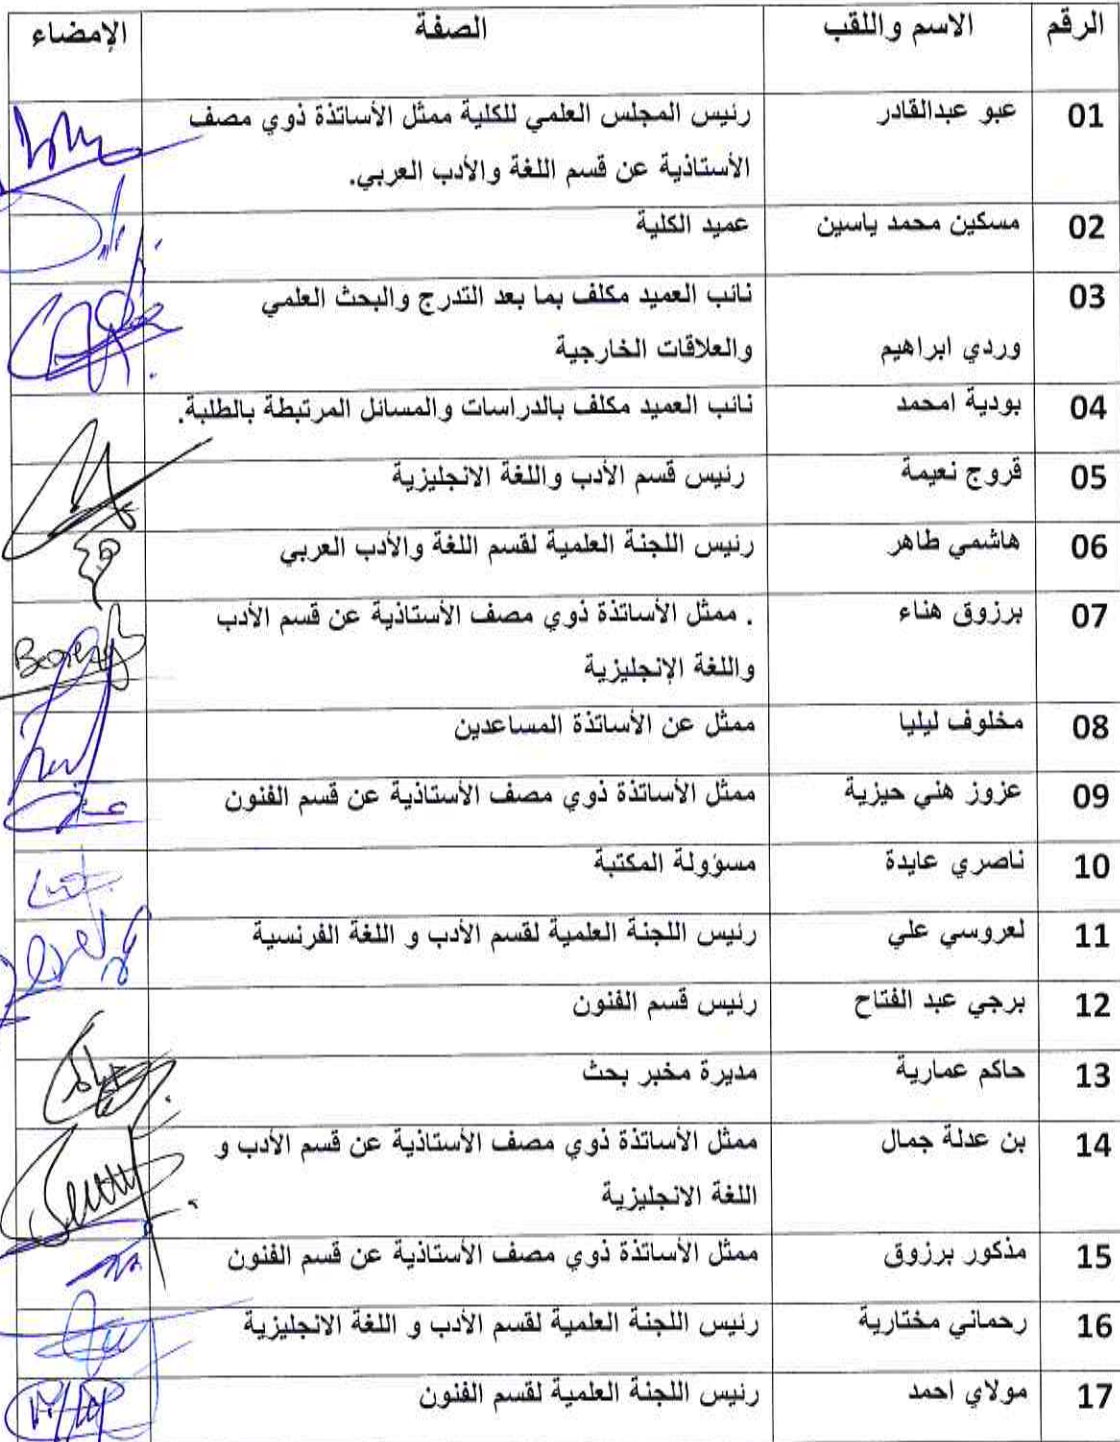 الرقم الاسم واللقب الصفة الإمضاء
01 عبو عبدالقادر رئيس المجلس العلمي للكلية ممثل الأساتذة ذوي مصف
الأستاذية عن قسم اللغة والأدب العربي.
02 مسكين محمد ياسين عميد الكلية
03 نائب العميد مكلف بما بعد التدرج والبحث العلمي
وردي ابراهيم والعلاقات الخارجية
04 بودية امحمد نائب العميد مكلف بالدراسات والمسائل المرتبطة بالطلبة.
05 قروج نعيمة رئيس قسم الأدب واللغة الانجليزية
06 هاشمي طاهر رئيس اللجنة العلمية لقسم اللغة والأدب العربي
07 برزوق هناء . ممثل الأساتذة ذوي مصف الأستاذية عن قسم الأدب
واللغة الإنجليزية
08 مخلوف ليليا ممثل عن الأساتذة المساعدين
09 عزوز هني حيزية ممثل الأساتذة ذوي مصف الأستاذية عن قسم الفنون
10 ناصري عايدة مسؤولة المكتبة
11 لعروسي علي رئيس اللجنة العلمية لقسم الأدب و اللغة الفرنسية
12 برجي عبد الفتاح رئيس قسم الفنون
13 حاكم عمارية مديرة مخبر بحث
14 بن عدلة جمال ممثل الأساتذة ذوي مصف الأستاذية عن قسم الأدب و
اللغة الانجليزية
15 مذكور برزوق ممثل الأساتذة ذوي مصف الأستاذية عن قسم الفنون
16 رحماني مختارية رئيس اللجنة العلمية لقسم الأدب و اللغة الانجليزية
17 مولاي احمد رئيس اللجنة العلمية لقسم الفنون